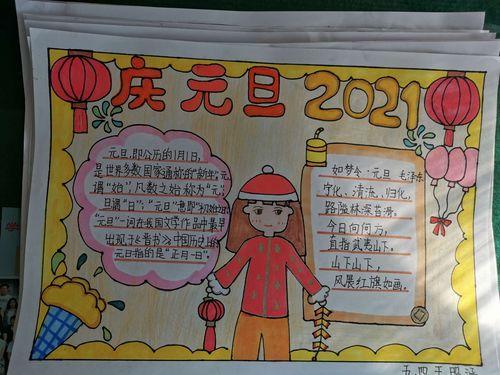 庆元旦2021
元旦,即公历的1月1日,
是世界多数国家通称的"新年",元
谓"始",凡数之始称为"元";
旦谓"日";"元旦"意即"初始之日"
"元旦"一词在我国文学作品中最早
出现于《晋书》。中国历史上的
元旦指的是"正月一日"。
如梦令·元旦 毛泽东
宁化、清流、归化,
路隘林深苔滑。
今日向何方,
直指武夷山下。
山下山下,
风展红旗如画。
五、四
学